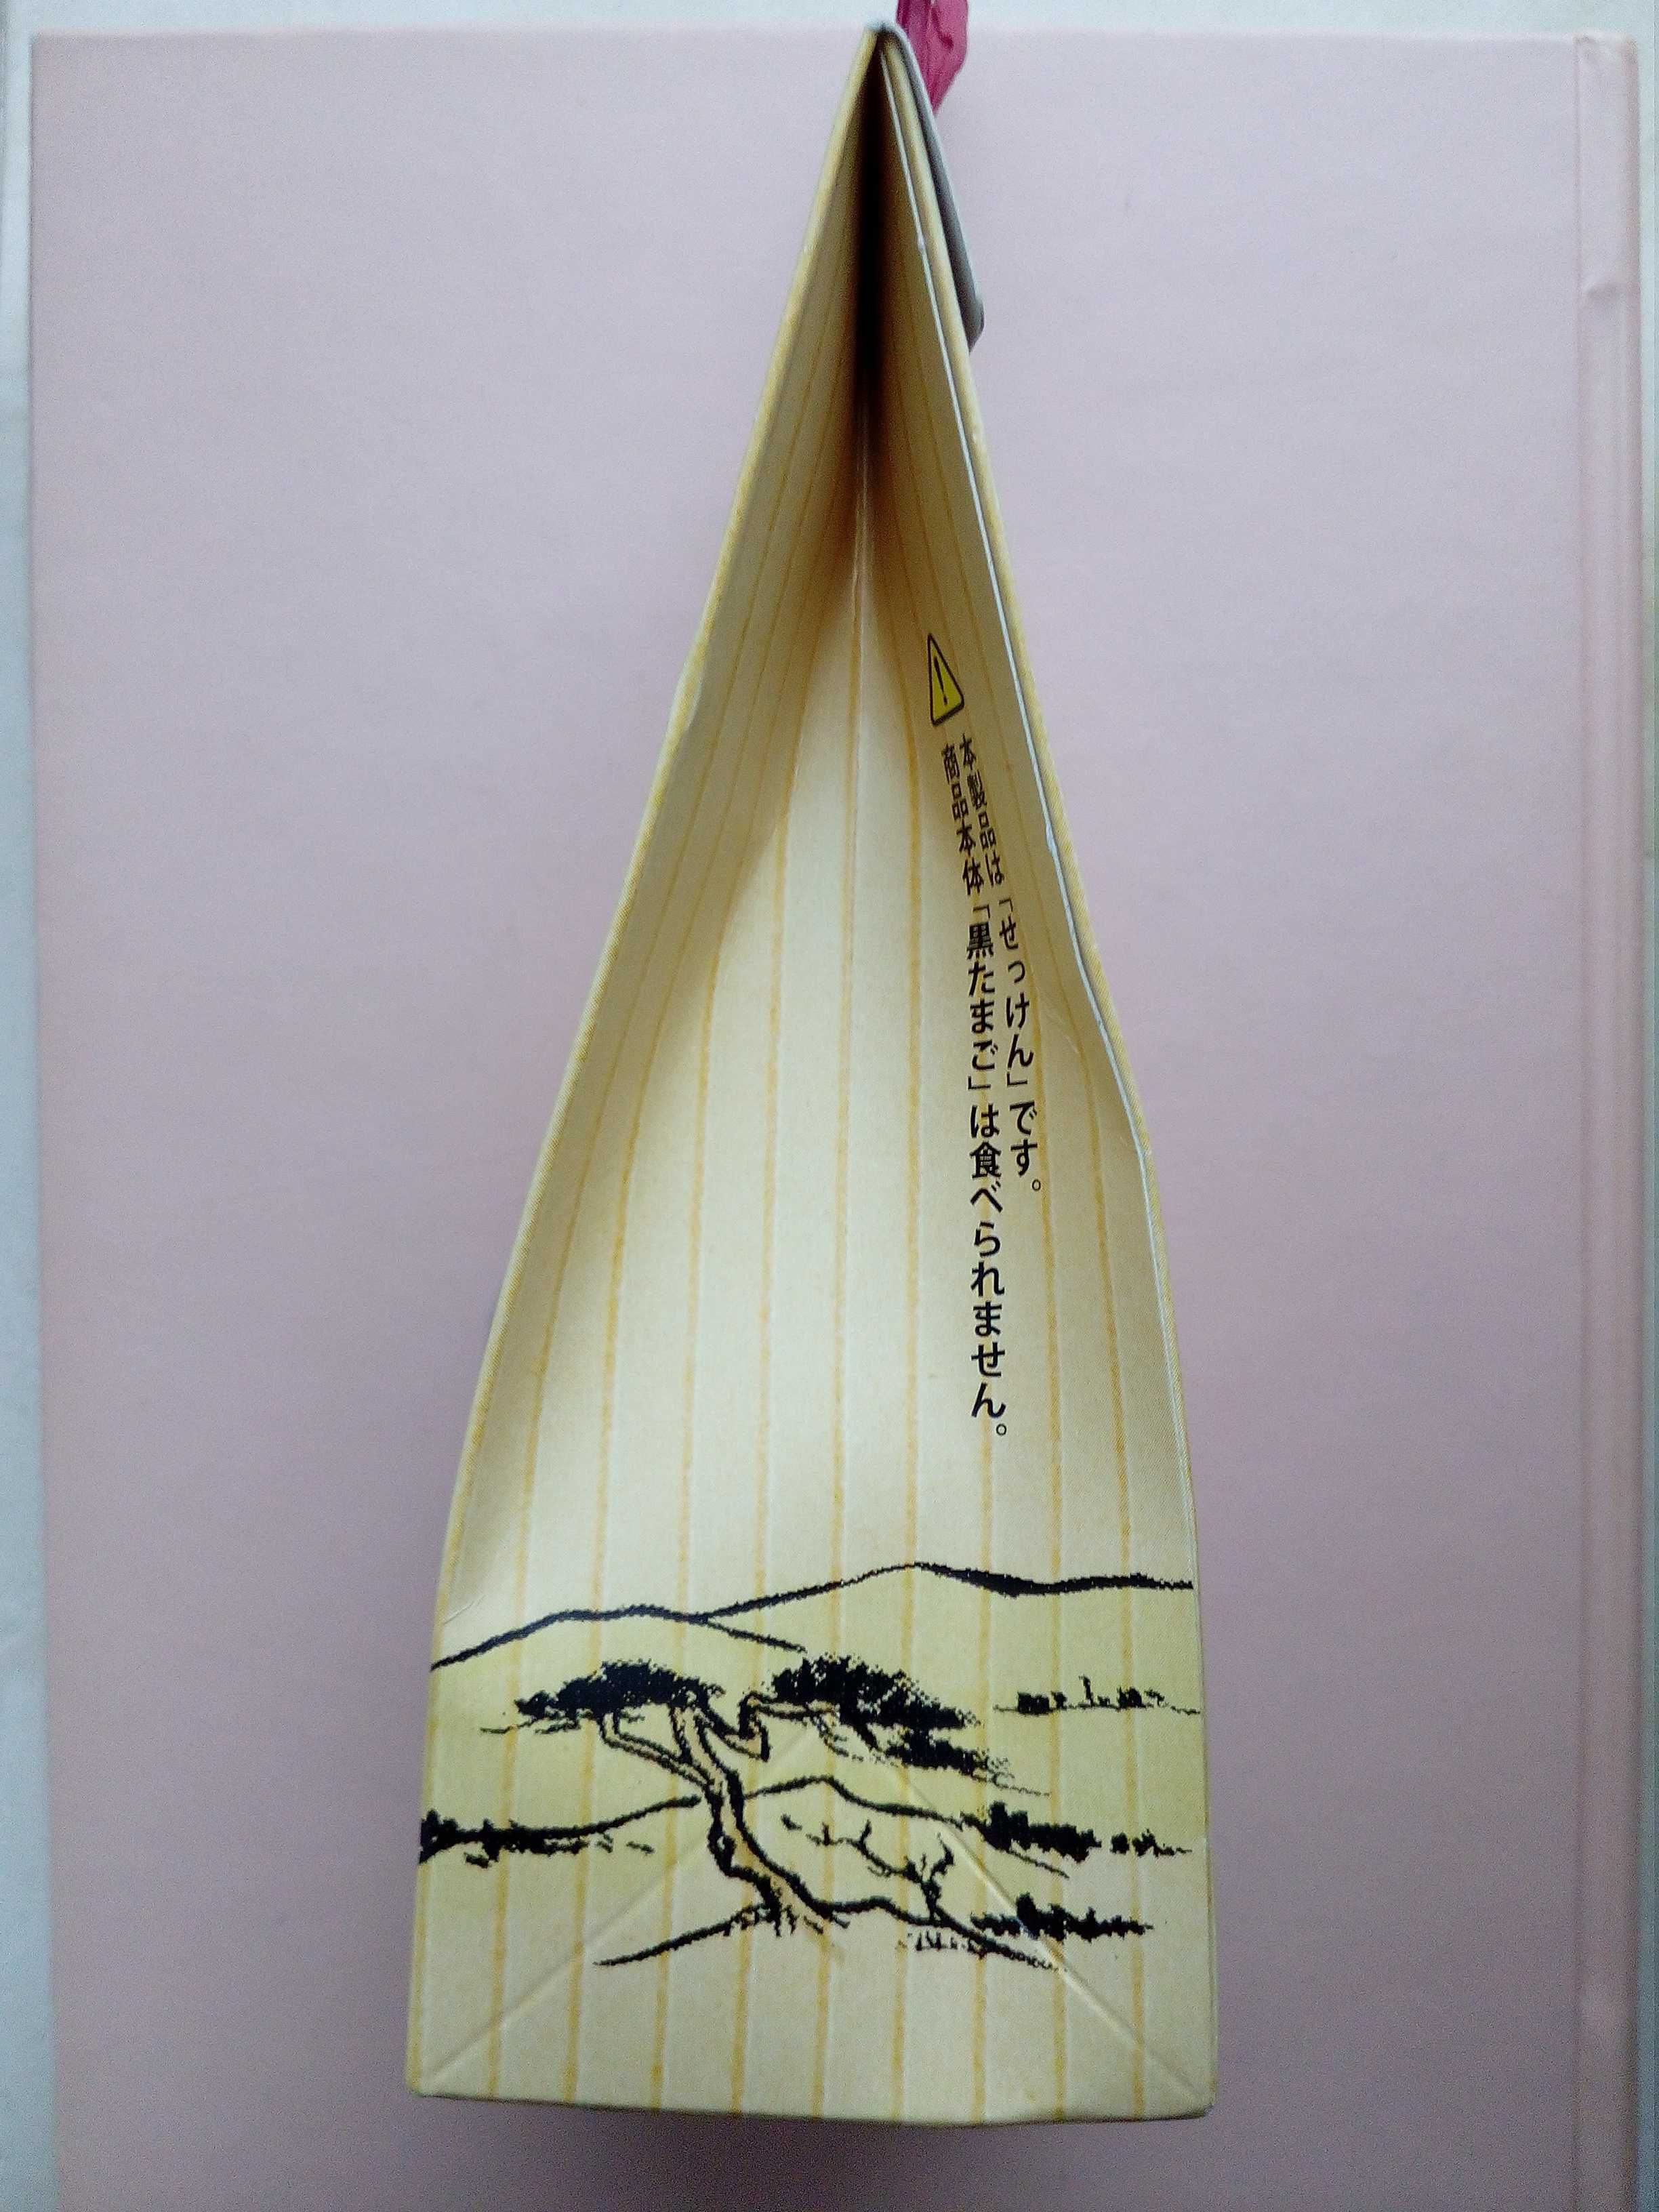 本製品は「せっけん」です。
商品本体「黒たまご」は食べられません。